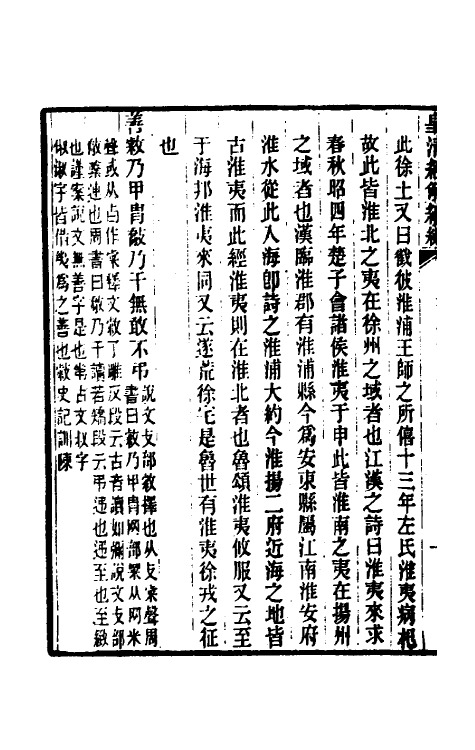 皇清經解續編
此徐土又曰截彼淮浦王師之所僖十三年左氏淮夷病杞
故此皆淮北之夷在徐州之域者也江漢之詩曰淮夷來求
春秋昭四年楚子會諸侯淮夷于申此皆淮南之夷在揚州
之域者也漢臨淮郡有淮浦縣今爲安東縣屬江南淮安府
淮水從此入海卽詩之淮浦大約今淮揚二府近海之地皆
古淮夷而此經淮夷則在淮北者也魯頌淮夷攸服又云至
于海邦淮夷來同又云遂荒徐宅是魯世有淮夷徐戎之征
也
善敹乃甲冑敿乃干無敢不弔說文攴部敹擇也从攴𡩁聲周
書曰敹乃甲冑网部𡩁从网米
聲或从占作𡩁釋文敹了雕反段云古音讀如彌說文攴部
敿繫連也周書曰敿乃干讀若矯段云弔逦也逦至也至緻
也謹案說文無善字是也弔占文叔字
俶淑字皆借爲之善也敹史記訓陳